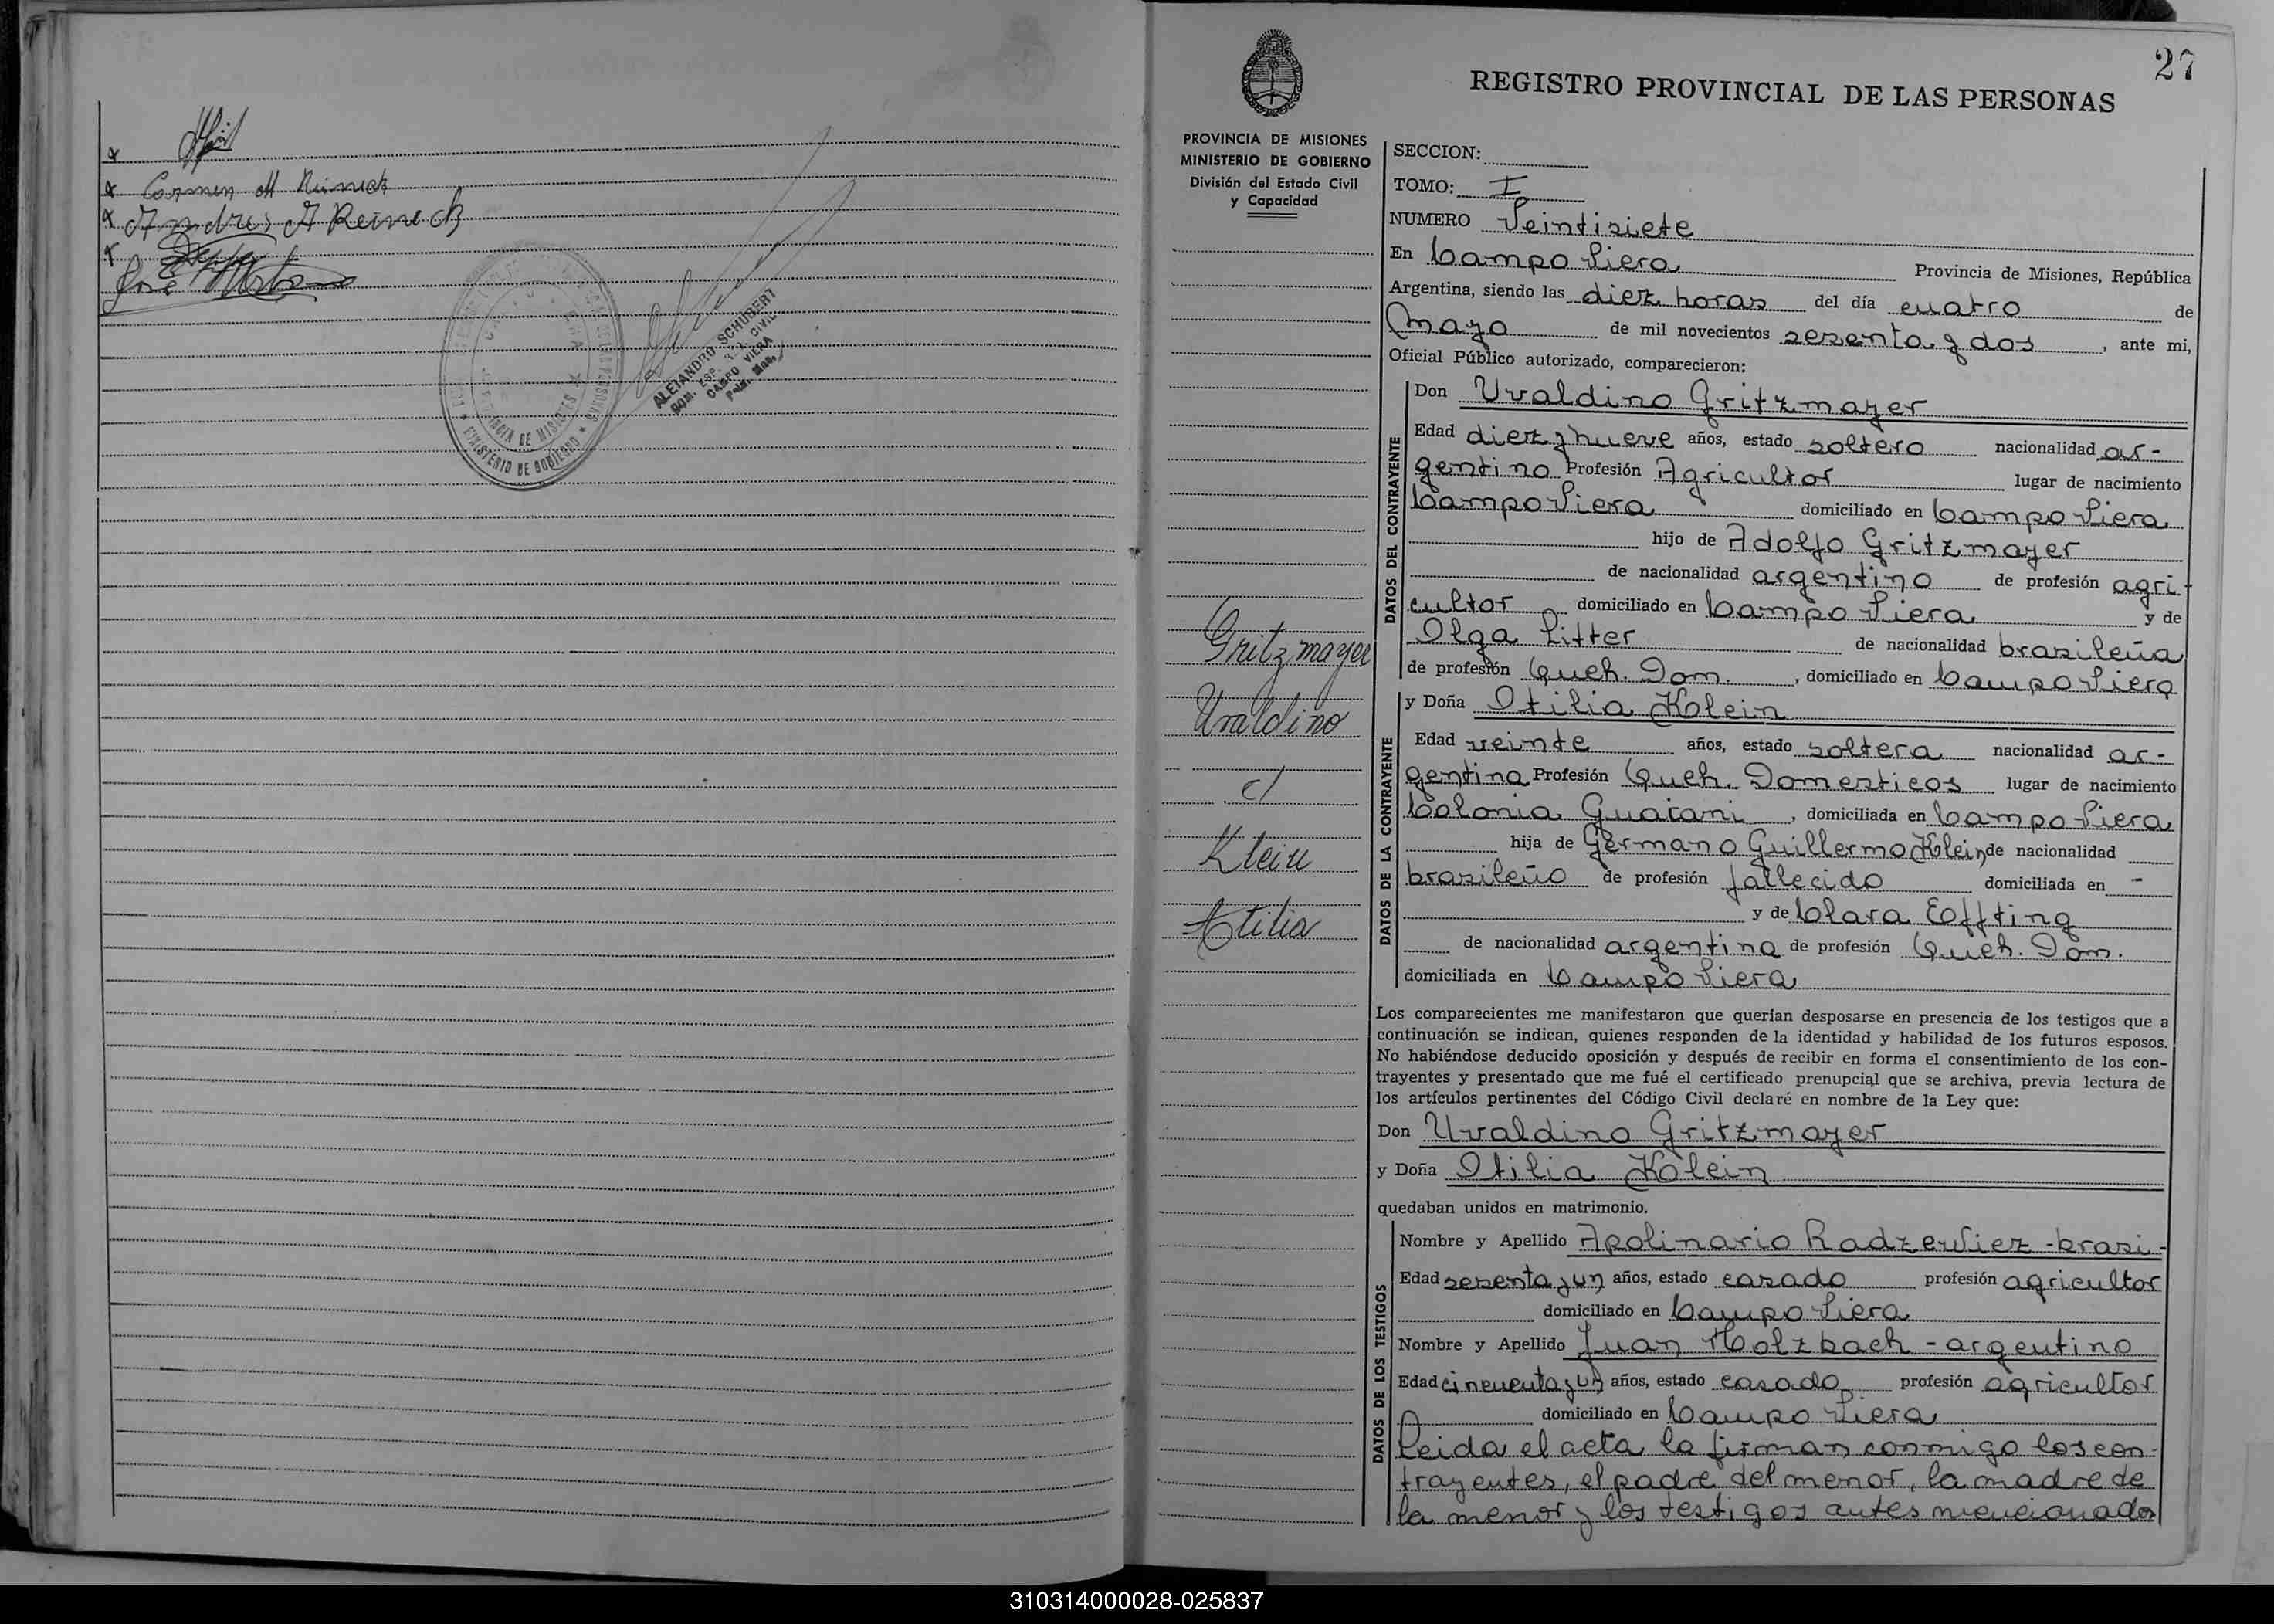 Carmen M Reineck
Andres A Reineck
José
PROVINCIA DE MISIONES
MINISTERIO DE GOBIERNO
ALEJANDRO SCHUBERT
CAMPO VIERA
27
REGISTRO PROVINCIAL DE LAS PERSONAS
PROVINCIA DE MISIONES
MINISTERIO DE GOBIERNO
División del Estado Civil
y Capacidad
Gritzmayer
Uvaldino
c/
Klein
Otilia
SECCION:
TOMO: I
NUMERO Veintisiete
En Campo Viera Provincia de Misiones, República
Argentina, siendo las diez horas del día cuatro de
Mayo de mil novecientos sesenta y dos, ante mi,
Oficial Público autorizado, comparecieron:
DATOS DEL CONTRAYENTE
Don Uvaldino Gritzmayer
Edad diez y nueve años, estado soltero nacionalidad ar-
gentino Profesión Agricultor lugar de nacimiento
Campo Viera domiciliado en Campo Viera
hijo de Adolfo Gritzmayer
de nacionalidad argentino de profesión agri-
cultor domiciliado en Campo Viera y de
Olga Litter de nacionalidad brasileña
de profesión Queh. Dom., domiciliado en Campo Viera
DATOS DE LA CONTRAYENTE
y Doña Otilia Klein
Edad veinte años, estado soltera nacionalidad ar-
gentina Profesión Queh. Domesticos lugar de nacimiento
Colonia Guarani, domiciliada en Campo Viera
hija de Germano Guillermo Klein de nacionalidad
brasileño de profesión fallecido domiciliada en -
y de Clara Effting
de nacionalidad argentina de profesión Queh. Dom.
domiciliada en Campo Viera
Los comparecientes me manifestaron que querían desposarse en presencia de los testigos que a
continuación se indican, quienes responden de la identidad y habilidad de los futuros esposos.
No habiéndose deducido oposición y después de recibir en forma el consentimiento de los con-
trayentes y presentado que me fué el certificado prenupcial que se archiva, previa lectura de
los artículos pertinentes del Código Civil declaré en nombre de la Ley que:
Don Uvaldino Gritzmayer
y Doña Otilia Klein
quedaban unidos en matrimonio.
DATOS DE LOS TESTIGOS
Nombre y Apellido Apolinario Radzewiez - brasi-
Edad sesenta y un años, estado casado profesión agricultor
domiciliado en Campo Viera
Nombre y Apellido Juan Holzbach - argentino
Edad cincuenta y un años, estado casado profesión agricultor
domiciliado en Campo Viera
Leida el acta la firman conmigo los con-
trayentes, el padre del menor, la madre de
la menor y los testigos antes mencionados
310314000028-025837